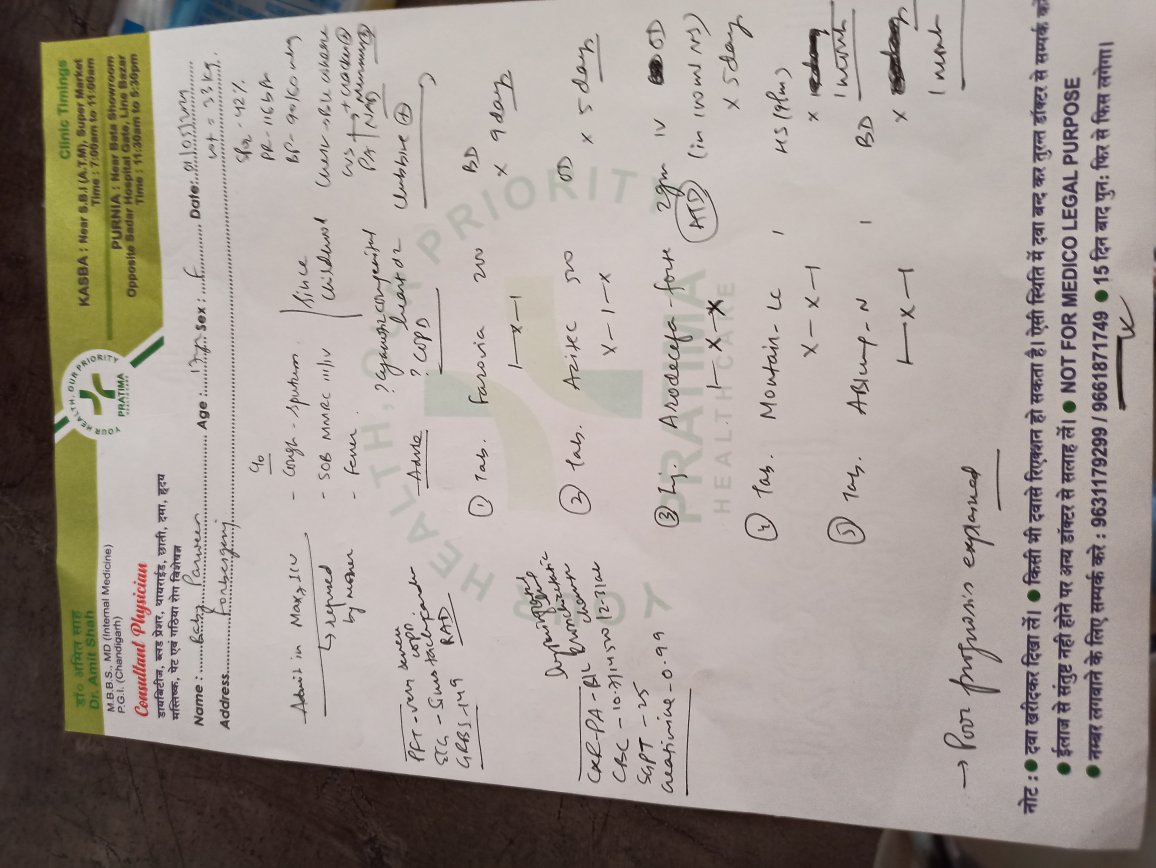 डा० अमित साह
Dr. Amit Shah
M.B.B.S., MD (Internal Medicine)
P.G.I. (Chandigarh)
Consultant Physician
डायबिटीज, ब्लड प्रेशर, थायराईड, छाती, दमा, हृदय
मस्तिष्क, पेट एवं गठिया रोग विशेषज्ञ
YOUR HEALTH, OUR PRIORITY
PRATIMA
Clinic Timings
KASBA : Near S.B.I (A.T.M), Super Market
Time : 7:00am to 11:00am
PURNIA : Near Bata Showroom
Opposite Sadar Hospital Gate, Line Bazar
Time : 11:30am to 5:30pm
Name : Baby Parween Age : Sex : F Date:
Address
wt = 33 kg
SPO2 - 42%
PR - 116 bpm
BP - 90/60 mmHg
c/o
- Cough - Sputum
- SOB MMRC III/IV
- Fever
Since childhood
Admit in Max, ICU
↳ refused by mother
PFT - very severe COPD
ECG - Sinus tachycardia
RAD
GRBS - 149
? Cyanotic congenital heart d
? COPD
clubbing ⊕
Advice
① Tab. Farovia 200 BD
1-x-1 x 9 days
② Tab. Azitec 500 OD
x-1-x x 5 days
③ Inj. forte 2gm IV OD
1-x-x ATD (in 100ml NS)
x 5 days
④ Tab. Montair-LC 1 HS (9pm)
x-x-1 x 1 month
⑤ Tab. ABlump-N 1 BD
1-x-1 x 1 month
CXR-PA - B/L
Bronchiectatic
CBC - 10.7/14500/2.31
SGPT - 25
Creatinine - 0.99
→ Poor prognosis explained
YOUR HEALTH, OUR PRIORITY
PRATIMA
HEALTH CARE
नोट : ● दवा खरीदकर दिखा लें। ● किसी भी दवासे रिएक्शन हो सकता है। ऐसी स्थिति में दवा बन्द कर तुरन्त डॉक्टर से सम्पर्क करें
● ईलाज से संतुष्ट नही होने पर अन्य डॉक्टर से सलाह लें। ● NOT FOR MEDICO LEGAL PURPOSE
● नम्बर लगवाने के लिए सम्पर्क करे : 9631179299 / 9661871749 ● 15 दिन बाद पुन: फिर से फिस लगेगा।